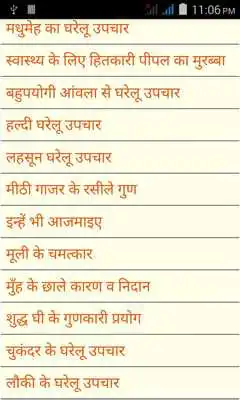 11:06 PM
मधुमेह का घरेलू उपचार
स्वास्थ्य के लिए हितकारी पीपल का मुरब्बा
बहुपयोगी आंवला से घरेलू उपचार
हल्दी घरेलू उपचार
लहसून घरेलू उपचार
मीठी गाजर के रसीले गुण
इन्हें भी आजमाइए
मूली के चमत्कार
मुँह के छाले कारण व निदान
शुद्ध घी के गुणकारी प्रयोग
चुकंदर के घरेलू उपचार
लौकी के घरेलू उपचार